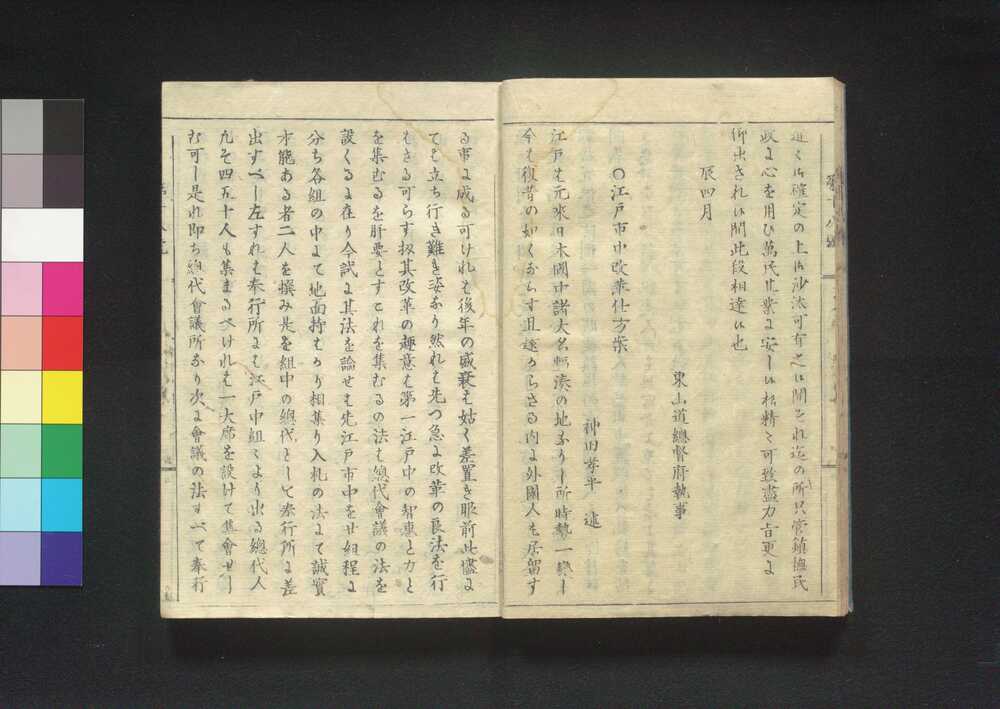 追々御確定の上御沙汰可有之候間それ迄の所只管鎮撫民
政に心を用ひ萬民其業に安し候様精々可致盡力旨更に
仰出され候間此段相達候也
辰四月
東山道總督府執事
○江戸市中改革仕方案
神田孝平 述
江戸も元来日本國中諸大名輻湊の地なりし所時勢一變し
今も復昔の如くならす且遠からさる内に外國人も居留す
る事に成る可けれも後年の盛衰も姑く差置き眼前此儘に
ても立ち行き難き姿なり然れも先つ急に改革の良法を行
もさる可らす扨其改革の趣意も第一江戸中の智恵と力と
を集むるを肝要とすこれを集むるの法も總代會議の法を
設くるに在り今試に其法を論せも先江戸市中を廿組程に
分ち各組の中にて地面持もかり相集り入札の法にて誠實
才能ある者二人を撰み是を組中の總代として奉行所に差
出すへし左すれも奉行所にも江戸中組々より出る總代人
凡そ四五十人も集まるへけれも一大席を設けて集會せし
む可し是れ即ち總代會議所なり次に會議の法すへて奉行